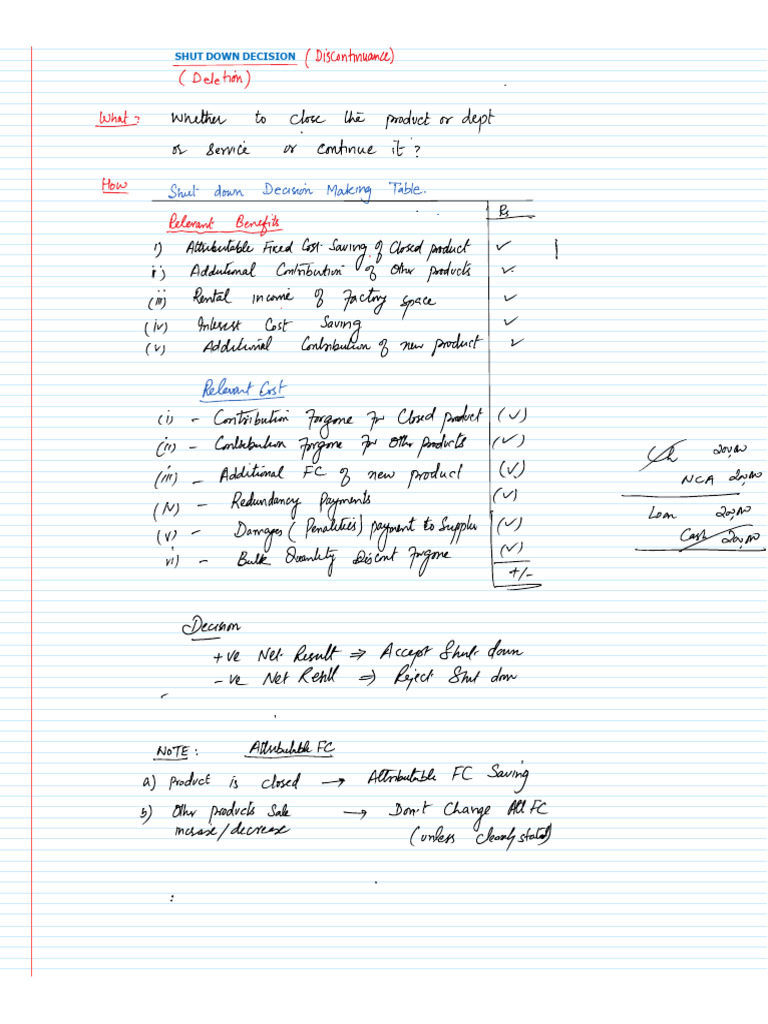 SHUT DOWN DECISION (Discontinuance)
(Deletion)
What: Whether to close the product or dept
or service or continue it?
How Shut down Decision Making Table.
Rs
Relevant Benefits
i) Attributable Fixed Cost Saving of Closed product ✓
ii) Additional Contribution of Other Products ✓
(iii) Rental income of Factory space ✓
(iv) Interest Cost Saving ✓
(v) Additional Contribution of new product ✓
Relevant Cost
(i) - Contribution Forgone For Closed product (✓)
(ii) - Contribution Forgone For Other Products (✓)
(iii) - Additional FC of new product (✓)
(iv) - Redundancy Payments (✓)
(v) - Damages (Penalities) payment to Supplier (✓)
vi) - Bulk Quantity Discont Forgone (✓)
+/-
NCA
Loan
Cash
Decision
+ve Net Result ⇒ Accept Shut down
-ve Net Result ⇒ Reject Shut down
NOTE: Attributable FC
a) Product is closed → Attributable FC Saving
b) Other products Sale → Don't Change Att FC
increase/decrease (unless clearly stated)
: